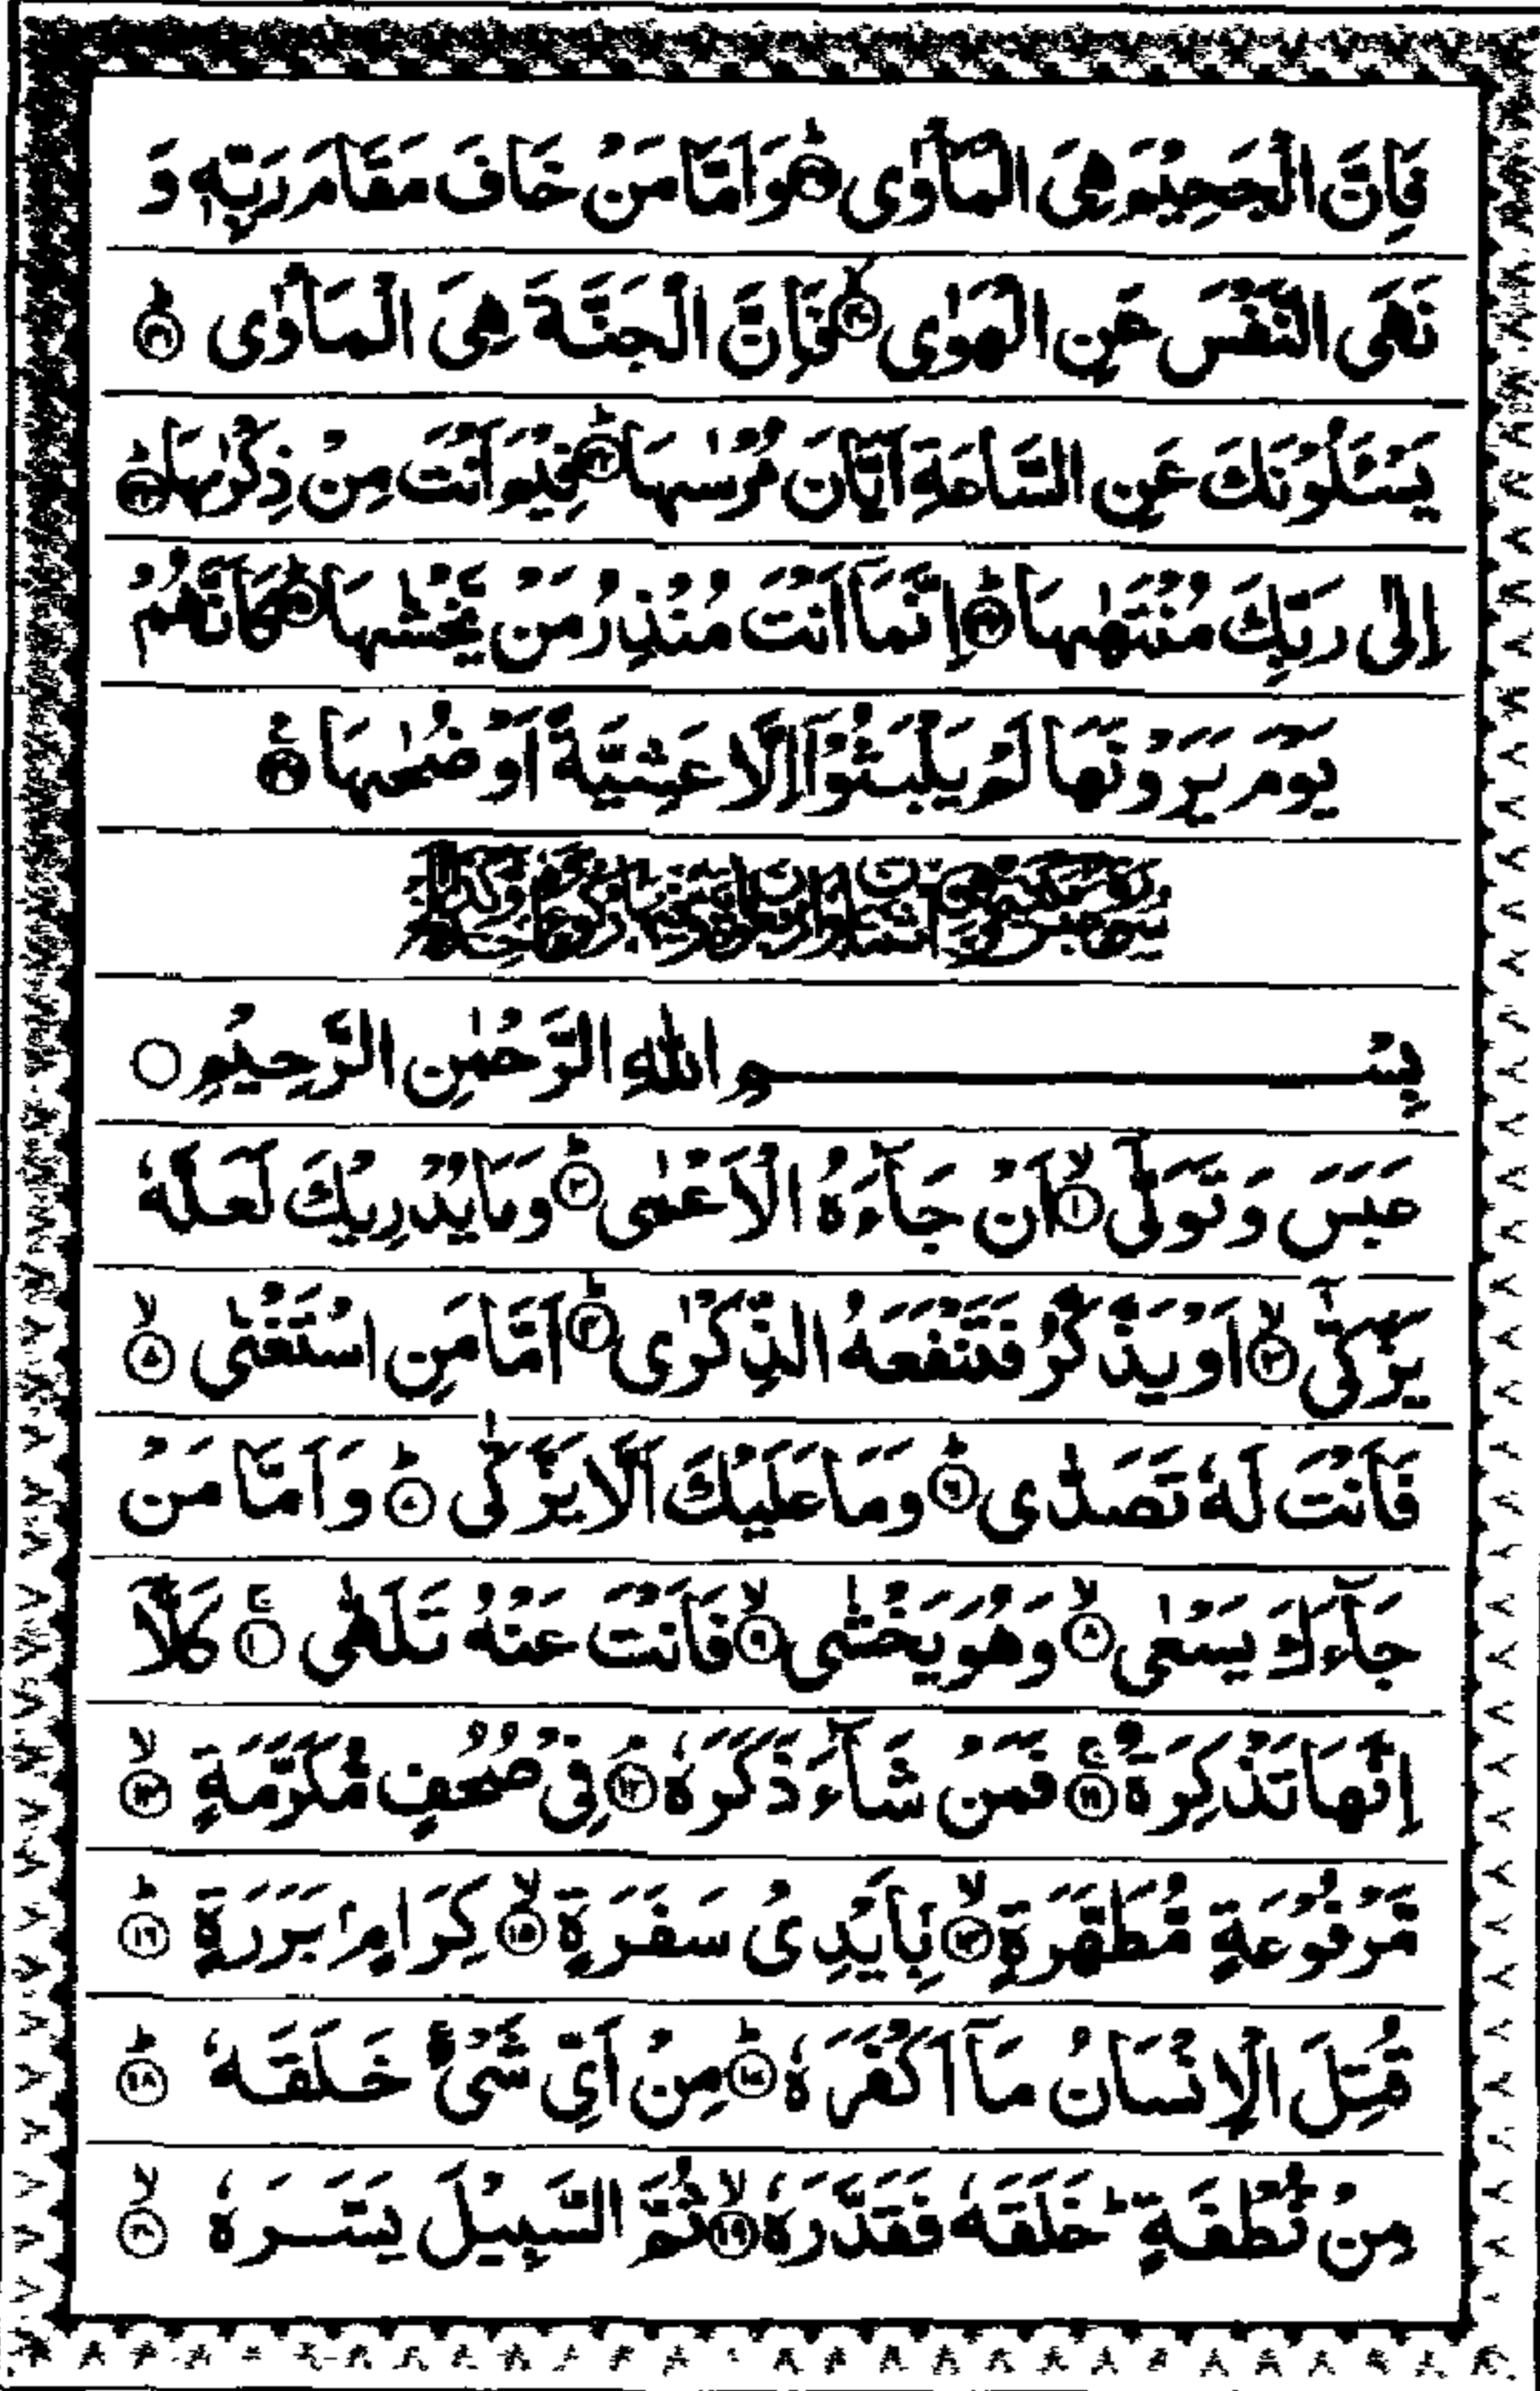 فَاِنَّ الْجَحِيْمَ هِيَ الْمَاْوٰى ؕ﴿۳۹﴾ وَاَمَّا مَنْ خَافَ مَقَامَ رَبِّهٖ وَ
نَهَى النَّفْسَ عَنِ الْهَوٰى ۙ﴿۴۰﴾ فَاِنَّ الْجَنَّةَ هِيَ الْمَاْوٰى ؕ﴿۴۱﴾
يَسْـَٔلُوْنَكَ عَنِ السَّاعَةِ اَيَّانَ مُرْسٰىهَا ؕ﴿۴۲﴾ فِيْمَ اَنْتَ مِنْ ذِكْرٰىهَا ؕ﴿۴۳﴾
اِلٰى رَبِّكَ مُنْتَهٰىهَا ؕ﴿۴۴﴾ اِنَّمَاۤ اَنْتَ مُنْذِرُ مَنْ يَّخْشٰىهَا ؕ﴿۴۵﴾ كَاَنَّهُمْ
يَوْمَ يَرَوْنَهَا لَمْ يَلْبَثُوْۤا اِلَّا عَشِيَّةً اَوْ ضُحٰىهَا ﴿۴۶﴾
بِسْمِ اللّٰهِ الرَّحْمٰنِ الرَّحِيْمِ ○
عَبَسَ وَ تَوَلّٰۤى ۙ﴿۱﴾ اَنْ جَآءَهُ الْاَعْمٰى ؕ﴿۲﴾ وَمَا يُدْرِيْكَ لَعَلَّهٗ
يَزَّكّٰۤى ۙ﴿۳﴾ اَوْ يَذَّكَّرُ فَتَنْفَعَهُ الذِّكْرٰى ؕ﴿۴﴾ اَمَّا مَنِ اسْتَغْنٰى ۙ﴿۵﴾
فَاَنْتَ لَهٗ تَصَدّٰى ؕ﴿۶﴾ وَمَا عَلَيْكَ اَلَّا يَزَّكّٰى ؕ﴿۷﴾ وَاَمَّا مَنْ
جَآءَكَ يَسْعٰى ۙ﴿۸﴾ وَهُوَ يَخْشٰى ۙ﴿۹﴾ فَاَنْتَ عَنْهُ تَلَهّٰى ۚ﴿۱۰﴾ كَلَّاۤ
اِنَّهَا تَذْكِرَةٌ ۚ﴿۱۱﴾ فَمَنْ شَآءَ ذَكَرَهٗ ۘ﴿۱۲﴾ فِيْ صُحُفٍ مُّكَرَّمَةٍ ۙ﴿۱۳﴾
مَّرْفُوْعَةٍ مُّطَهَّرَةٍ ۙ﴿۱۴﴾ بِاَيْدِيْ سَفَرَةٍ ۙ﴿۱۵﴾ كِرَامٍۭ بَرَرَةٍ ؕ﴿۱۶﴾
قُتِلَ الْاِنْسَانُ مَاۤ اَكْفَرَهٗ ؕ﴿۱۷﴾ مِنْ اَيِّ شَيْءٍ خَلَقَهٗ ؕ﴿۱۸﴾
مِنْ نُّطْفَةٍ ؕ خَلَقَهٗ فَقَدَّرَهٗ ۙ﴿۱۹﴾ ثُمَّ السَّبِيْلَ يَسَّرَهٗ ۙ﴿۲۰﴾